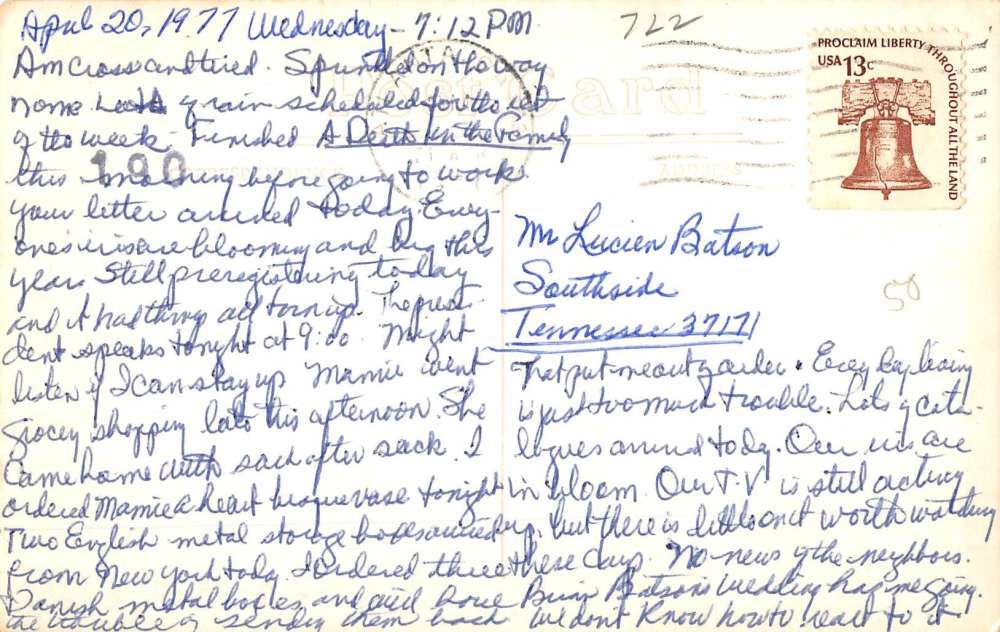 April 20, 1977 Wednesday - 7:12 PM
722
Am cross and tired. Sprinkled on the way
home. Lots of rain scheduled for the rest
of the week. Finished A Death in the Family
this morning before going to work.
Your letter arrived today. Every-
one's irises are blooming and big this
year. Still preregistering today
and it had things all torn up. The presi-
dent speaks tonight at 9:00. Might
listen if I can stay up. Mamie went
grocery shopping late this afternoon. She
came home with sack after sack. I
ordered Mamie a heart vase tonight
Two English metal storage boxes arrived
from New York today. I ordered three
Danish metal boxes and will have
the trouble of sending them back
Post Card
ADDRESS
190
PROCLAIM LIBERTY THROUGHOUT ALL THE LAND
USA 13c
Mr Lucien Batson
Southside
Tennessee 37171
50
That put me out of order. Every day living
is just too much trouble. Lots of cata-
logues arrived today. Our irises are
in bloom. Our T.V. is still acting
up, but there is little on it worth watching
these days. No news of the neighbors.
Brian Batson's wedding has me going.
We don't know how to react to it